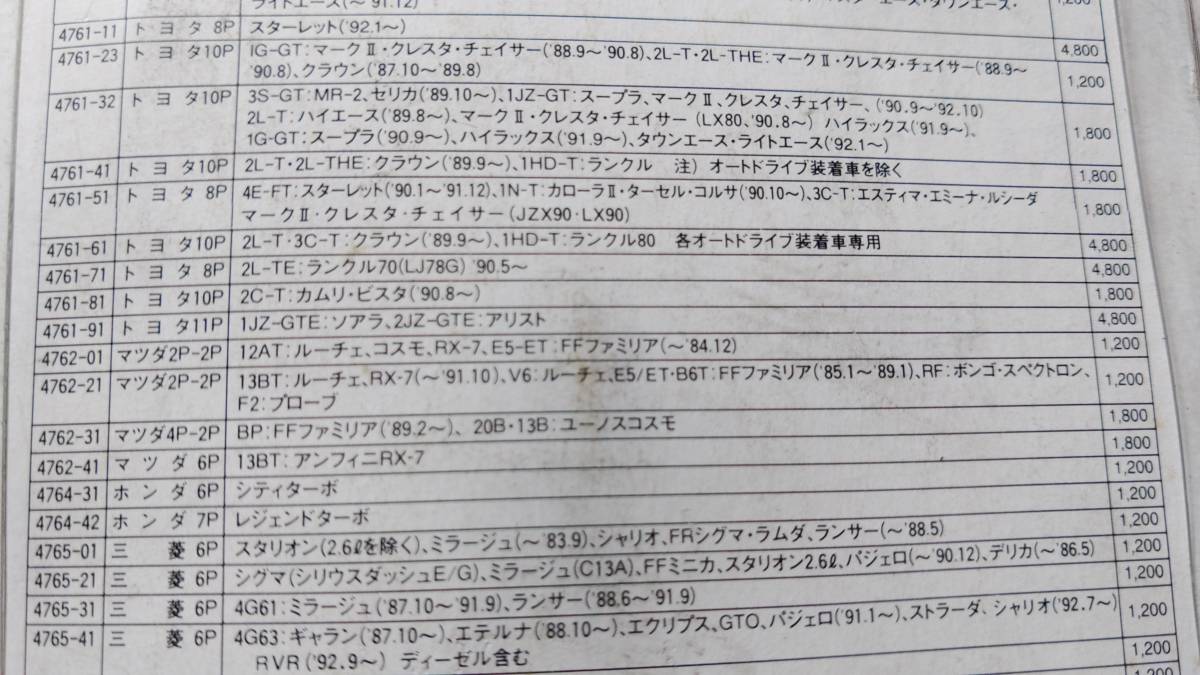 ライトエース(〜'91.12)
1,200
4761-11 トヨタ 8P スターレット('92.1〜) 4,800
4761-23 トヨタ10P IG-GT:マークⅡ・クレスタ・チェイサー('88.9〜'90.8)、2L-T・2L-THE:マークⅡ・クレスタ・チェイサー('88.9〜
'90.8)、クラウン('87.10〜'89.8) 1,200
4761-32 トヨタ10P 3S-GT:MR-2、セリカ('89.10〜)、1JZ-GT:スープラ、マークⅡ、クレスタ、チェイサー、('90.9〜'92.10)
2L-T:ハイエース('89.8〜)、マークⅡ・クレスタ・チェイサー(LX80、'90.8〜) ハイラックス('91.9〜)、 1,800
1G-GT:スープラ('90.9〜)、ハイラックス('91.9〜)、タウンエース・ライトエース('92.1〜)
4761-41 トヨタ10P 2L-T・2L-THE:クラウン('89.9〜)、1HD-T:ランクル 注)オートドライブ装着車を除く 1,800
4761-51 トヨタ 8P 4E-FT:スターレット('90.1〜'91.12)、1N-T:カローラⅡ・ターセル・コルサ('90.10〜)、3C-T:エスティマ・エミーナ・ルシーダ
マークⅡ・クレスタ・チェイサー(JZX90・LX90) 1,800
4761-61 トヨタ10P 2L-T・3C-T:クラウン('89.9〜)、1HD-T:ランクル80 各オートドライブ装着車専用 4,800
4761-71 トヨタ 8P 2L-TE:ランクル70(LJ78G) '90.5〜 4,800
4761-81 トヨタ10P 2C-T:カムリ・ビスタ('90.8〜) 1,800
4761-91 トヨタ11P 1JZ-GTE:ソアラ、2JZ-GTE:アリスト 4,800
4762-01 マツダ2P-2P 12AT:ルーチェ、コスモ、RX-7、E5-ET:FFファミリア(〜'84.12) 1,200
4762-21 マツダ2P-2P 13BT:ルーチェ、RX-7(〜'91.10)、V6:ルーチェ、E5/ET・B6T:FFファミリア('85.1〜'89.1)、RF:ボンゴ・スペクトロン、 1,200
F2:プローブ
4762-31 マツダ4P-2P BP:FFファミリア('89.2〜)、20B・13B:ユーノスコスモ 1,800
4762-41 マツダ 6P 13BT:アンフィニRX-7 1,800
4764-31 ホンダ 6P シティターボ 1,200
4764-42 ホンダ 7P レジェンドターボ 1,200
4765-01 三菱 6P スタリオン(2.6ℓを除く)、ミラージュ(〜'83.9)、シャリオ、FRシグマ・ラムダ、ランサー(〜'88.5) 1,200
4765-21 三菱 6P シグマ(シリウスダッシュE/G)、ミラージュ(C13A)、FFミニカ、スタリオン2.6ℓ、パジェロ(〜'90.12)、デリカ(〜'86.5) 1,200
4765-31 三菱 6P 4G61:ミラージュ('87.10〜'91.9)、ランサー('88.6〜'91.9) 1,200
4765-41 三菱 6P 4G63:ギャラン('87.10〜)、エテルナ('88.10〜)、エクリプス、GTO、パジェロ('91.1〜)、ストラーダ、シャリオ('92.7〜) 1,200
RVR('92.9〜) ディーゼル含む 1,200